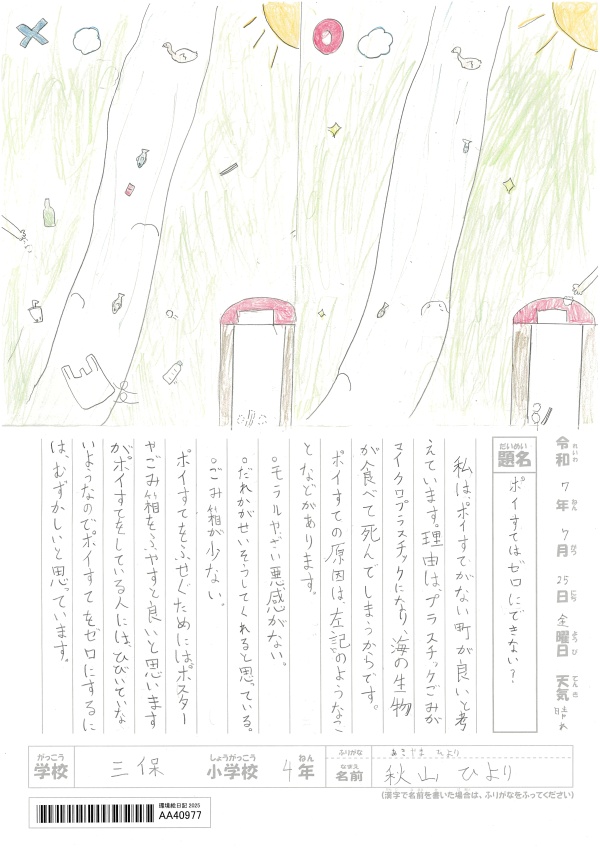 令和 7年 7月 25日 金曜日 天気 晴れ
れいわ ねん がつ にち ようび てんき
題名 ポイすてはゼロにできない?
だいめい
私は、ポイすてがない町が良いと考
えています。理由は、プラスチックごみが
マイクロプラスチックになり、海の生物
が食べて死んでしまうからです。
ポイすての原因は、左記のようなこ
となどがあります。
○モラルやざい悪感がない。
○だれかがせいそうしてくれると思っている。
○ごみ箱が少ない。
ポイすてをふせぐためには、ポスター
やごみ箱をふやすと良いと思います
が、ポイすてをしている人には、ひびいていな
いようなのでポイすてをゼロにするに
は、むずかしいと思っています。
がっこう しょうがっこう ねん ふりがな あきやま ひより
学校 三保 小学校 4年 名前 秋山 ひより
なまえ
(漢字で名前を書いた場合は、ふりがなをふってください)
環境絵日記 2025
AA40977